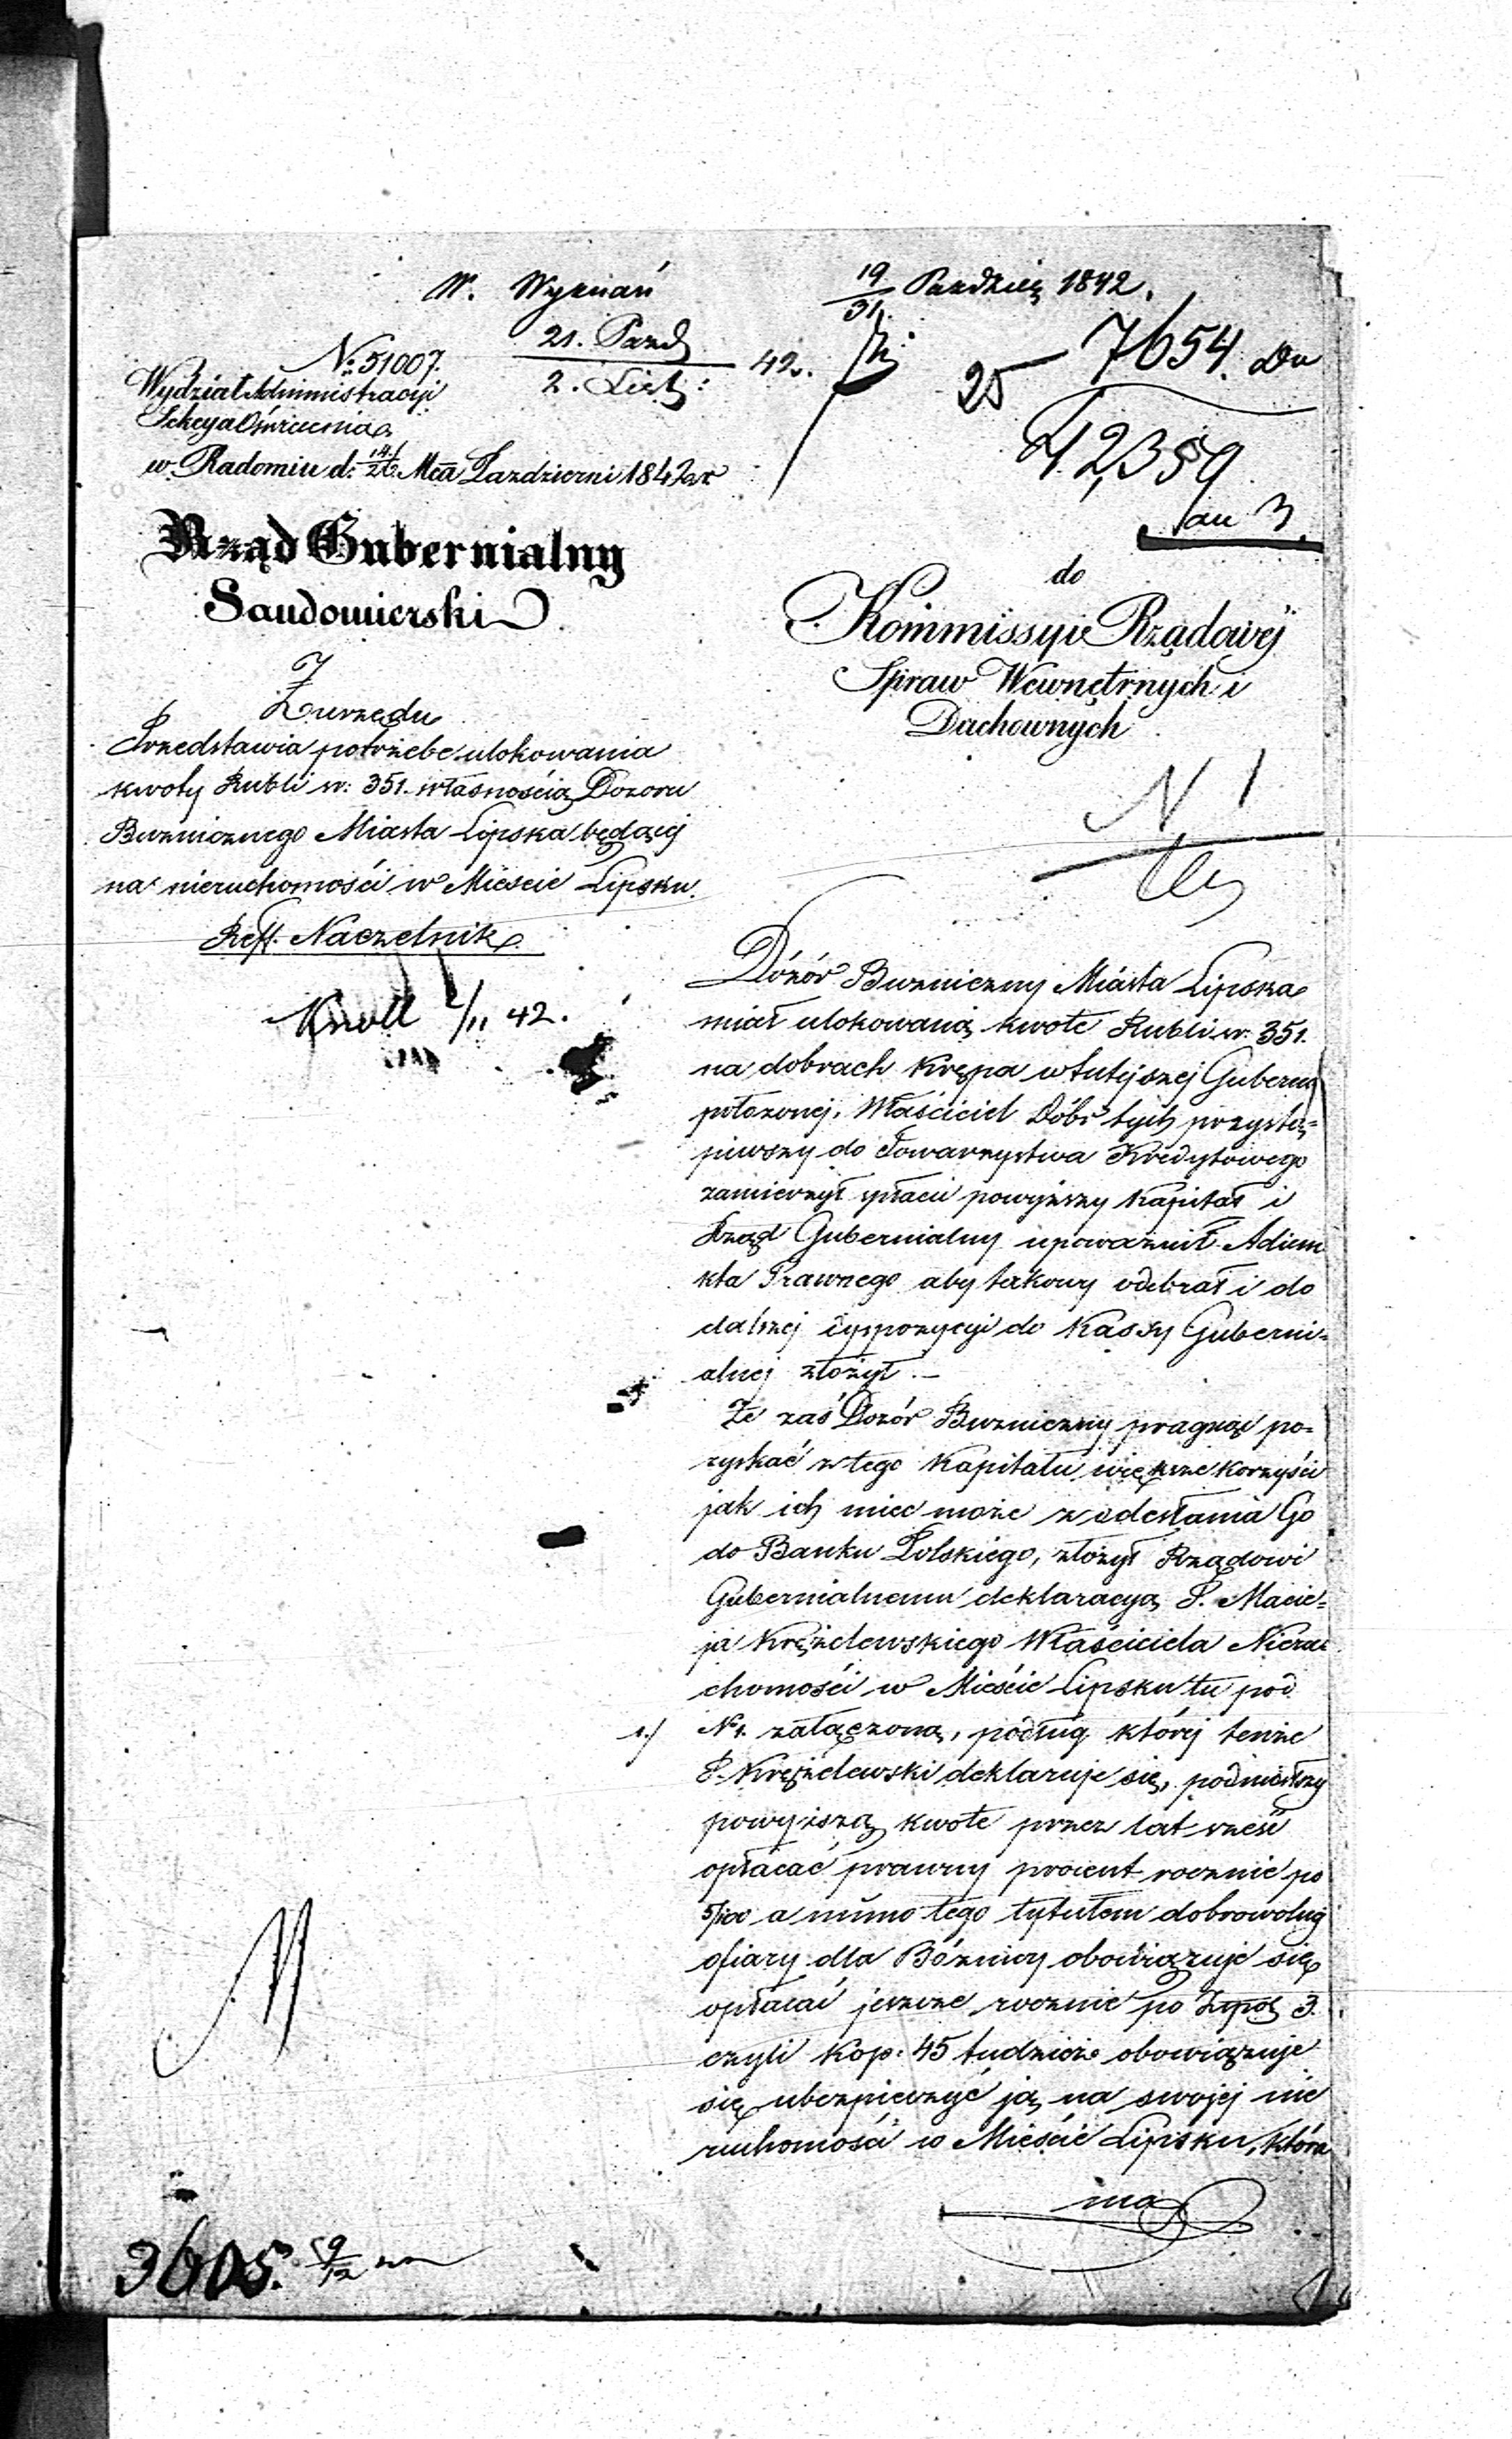 W. Wyznań
19/31 Pazdzier 1842.
21. Pazd
2. List: 42.
№ 51007.
Wydział Administracyi
Sekcya Oświecenia
w Radomiu d: 14/26 Mca Pazdzierni 1842 r
7654. Dn
25
42,359
Rząd Gubernialny
Sandomierski
do
Kommissyi Rządowéj
Spraw Wewnętrznych i
Duchownych
Z urzędu
Przedstawia potrzebę ulokowania
kwoty Rubli sr: 351. własnością Dozoru
Bużnicznego Miasta Lipska będącéj
na nieruchomości w Mieście Lipsku.
Ref. Naczelnik
Knoll 2/11 42.
N 1
Dozór Bużniczny Miasta Lipska
miał ulokowaną kwotę Rubli sr. 351.
na dobrach Krępa w tutejszej Gubernii
położonej. Właściciel Dóbr tych przystą=
piwszy do Towarzystwa Kredytowego
zamierzył spłacić powyższy Kapitał i
Rząd Gubernialny upoważnił Adjun
kta Prawnego aby takowy odebrał i do
dalszej dyspozycyi do Kassy Guberni=
alnej złożył. —
Że zaś Dozór Bużniczny pragnąc po=
zyskać z tego Kapitału większe korzyści
jak ich mieć może z odesłania Go
do Banku Polskiego, złożył Rządowi
Gubernialnemu deklaracyą P. Macie=
ja Krężelewskiego Właściciela Nieru
chomości w Mieście Lipsku tu pod
1./ № 1. załączoną, podług której tenże
P. Krężelewski deklaruje się, podniosłszy
powyższą kwotę przez lat sześć
opłacać prawny procent rocznie po
5/100 a mimo tego tytułem dobrowolnéj
ofiary dla Bóżnicy obowiązuje się
opłacać jeszcze rocznie po Złpol 3.
czyli Kop. 45 tudzież obowiązuje
się ubezpieczyć ją na swojej nie
ruchomości w Mieście Lipsku, która
ma
3605. 9/12